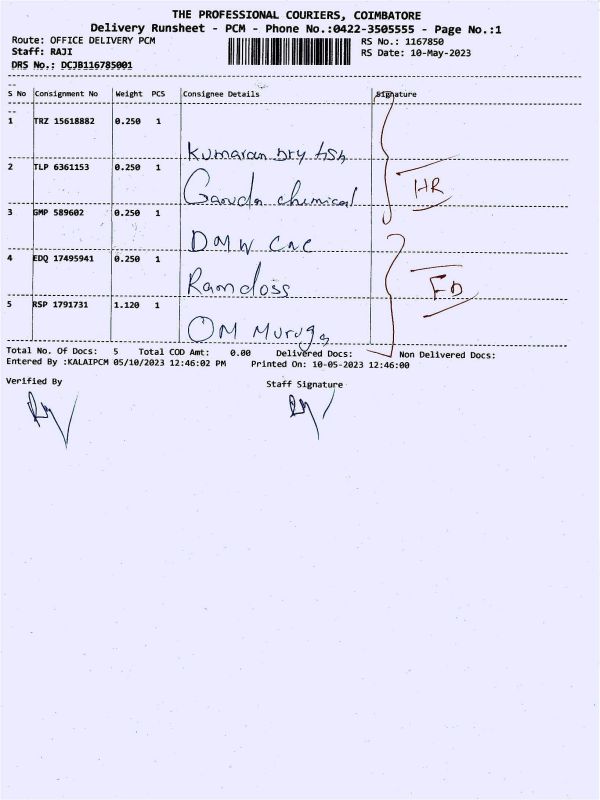 THE PROFESSIONAL COURIERS, COIMBATORE
Delivery Runsheet - PCM - Phone No.:0422-3505555 - Page No.:1
Route: OFFICE DELIVERY PCM
RS No.: 1167850
Staff: RAJI
RS Date: 10-May-2023
DRS No.: DCJB116785001
S No Consignment No Weight PCS Consignee Details Signature
1 TRZ 15618882 0.250 1
Kumaran Dry fish
2 TLP 6361153 0.250 1
Garuda chemical
HR
3 GMP 589602 0.250 1
DMW CNC
4 EDQ 17495941 0.250 1
Ramdoss
FD
5 RSP 1791731 1.120 1
OM Muruga
Total No. Of Docs: 5 Total COD Amt: 0.00 Delivered Docs: Non Delivered Docs:
Entered By :KALAIPCM 05/10/2023 12:46:02 PM Printed On: 10-05-2023 12:46:00
Verified By Staff Signature